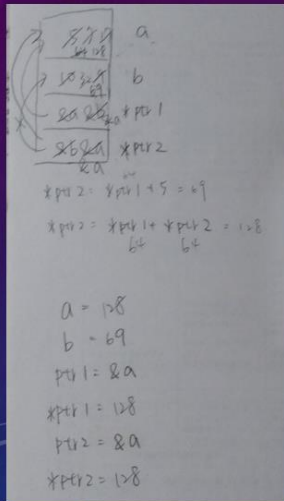 a
64 128
b
69
&a &b &a *ptr 1
&b &a *ptr 2
&a
*ptr 2 = *ptr 1 + 5 = 69
*ptr 2 = *ptr 1 + *ptr 2 = 128
64 64
a = 128
b = 69
ptr 1 = &a
*ptr 1 = 128
ptr 2 = &a
*ptr 2 = 128